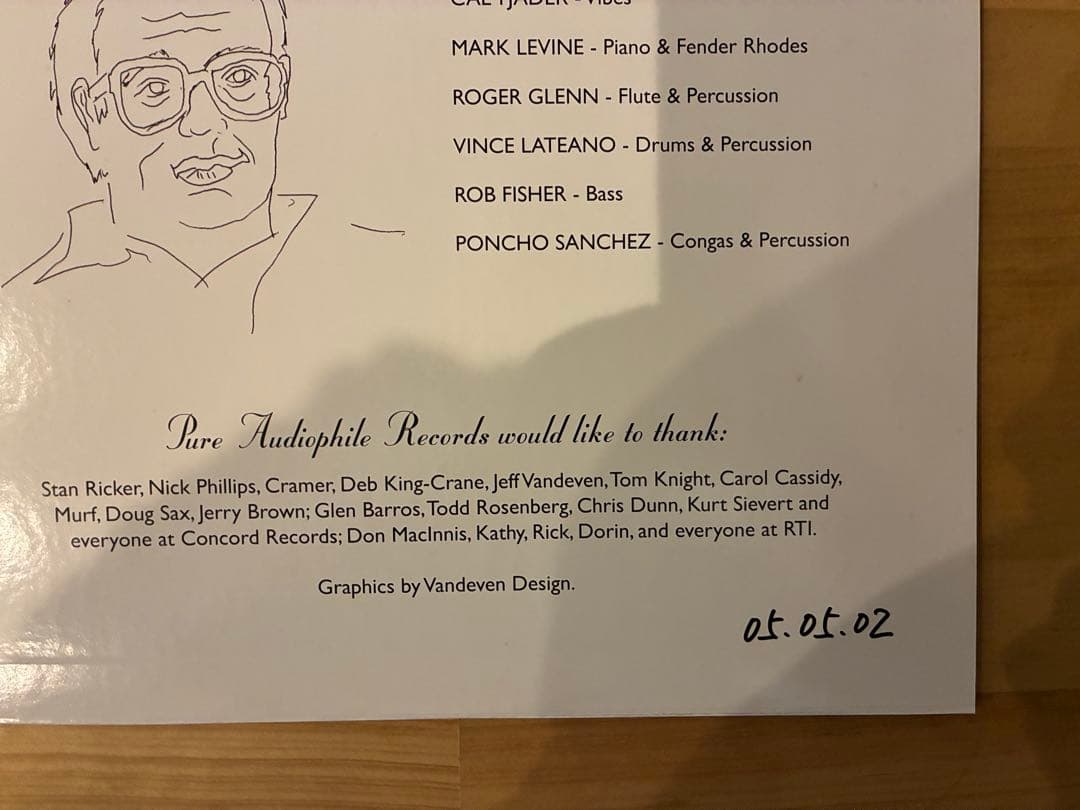 CAL TJADER - Vibes
MARK LEVINE - Piano & Fender Rhodes
ROGER GLENN - Flute & Percussion
VINCE LATEANO - Drums & Percussion
ROB FISHER - Bass
PONCHO SANCHEZ - Congas & Percussion
Pure Audiophile Records would like to thank:
Stan Ricker, Nick Phillips, Cramer, Deb King-Crane, Jeff Vandeven, Tom Knight, Carol Cassidy,
Murf, Doug Sax, Jerry Brown; Glen Barros, Todd Rosenberg, Chris Dunn, Kurt Sievert and
everyone at Concord Records; Don MacInnis, Kathy, Rick, Dorin, and everyone at RTI.
Graphics by Vandeven Design.
05.05.02